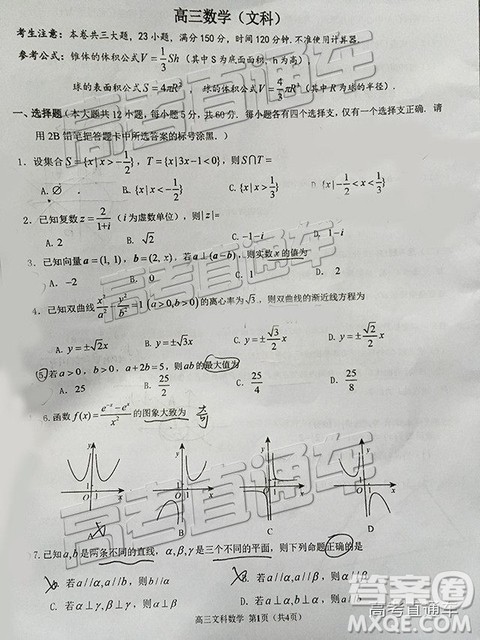 高三数学（文科）
考生注意：本卷共三大题，23小题，满分150分，时间120分钟.不准使用计算器.
参考公式：锥体的体积公式V=1/3Sh（其中S为底面面积，h为高）
球的表面积公式S=4πR²，体积公式V=4/3πR³（其中R为球的半径）.
一、选择题（本大题共12小题，每小题5分，共60分．每小题各有四个选择支，仅有一个选择支正确．请
用2B铅笔把答题卡中所选答案的标号涂黑．）
1．设集合S={x|x>-1/2}，T={x|3x-1<0}，则S∩T=
A. ∅ B. {x|x<-1/2} C. {x|x>1/3} D. {x|-1/2<x<1/3}
2．已知复数z=2/(1+i)（i为虚数单位），则|z|=
A. 2 B. √2 C. -1-i D. -1+i
3．已知向量a=(1,1)，b=(2,x)，若a⊥(a-b)，则实数x的值为
A. -2 B. 0 C. 1 D. 2
4．已知双曲线x²/a²-y²/b²=1(a>0,b>0)的离心率为√3，则双曲线的渐近线方程为
A. y=±√2x B. y=±√3x
5．若a>0，b>0，a+2b=5，则ab的最大值为
A. 25 B. 25/2 C. 25/4 D. 25/8
6.函数f(x)=(eˣ-e⁻ˣ)/x²的图象大致为 奇
y 1 O 1 x
A B C D
7．已知a,b是两条不同的直线，α,β,γ是三个不同的平面，则下列命题正确的是
A．若a//α,a//b，则b//α
B．若a//α,a//β，则α//β
高三文科数学 第1页（共4页）
高考直通车
答案圈
高考直通车